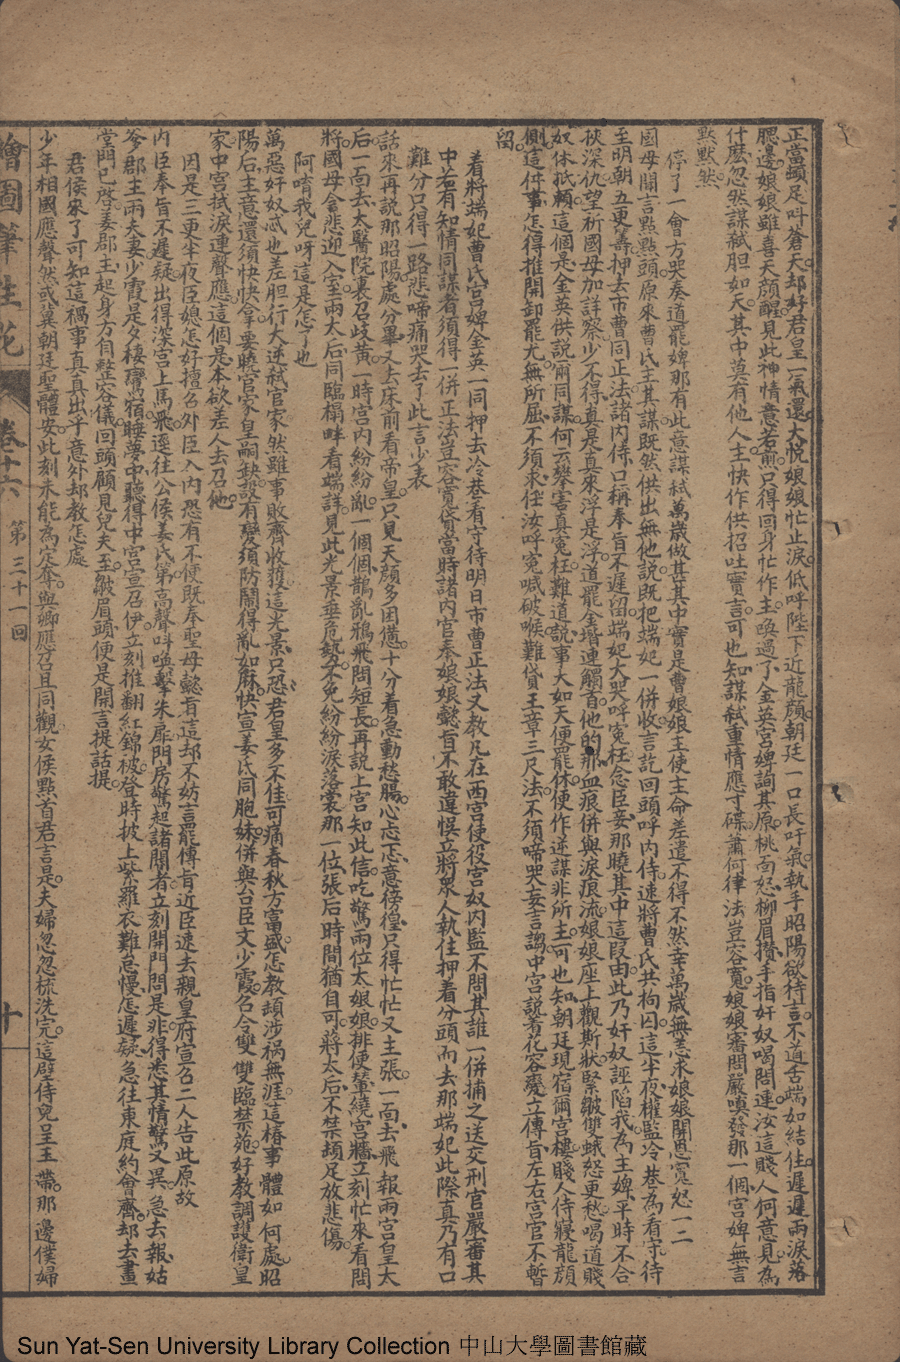 正當頓足叫蒼天却好君皇一氣還大悅娘娘忙止淚低呼陛下近龍顏朝廷一口長吁氣執手昭陽欲待言不道舌端如結住遲遲兩淚落
腮邊娘娘雖喜天顏醒見此神情意若煎只得回身忙作主喚過了金英宮婢詢其原桃面怒柳眉攢手指奸奴喝問連汝這賤人何意見為
什麽忽然謀弒胆如天其中莫有他人主快作供招吐實言可也知謀弒重情應寸磔蕭何律法豈容寬娘娘審問嚴嗔發那一個宮婢無言
點點然
停了一會方哭奏道罷婢那有此意謀弒萬歲做甚其中實是曹娘娘主使主命差遣不得不然幸萬歲無恙求娘娘開恩寬恕一二
國母聞言點點頭原來曹氏主其謀既然供出無他說既把端妃一併收言訖回頭呼內侍速將曹氏共拘囚這半夜權監冷巷為看守待
至明朝五更籌押去市曹同正法諸內侍口稱奉旨不遲留端妃大哭呼寃枉念臣妾那曉其中這段由此乃奸奴誣陷我為主婢平時不合
挾深仇望祈國母加詳察少不得真是真來浮是浮道罷金堦連觸首他的那血痕併與淚痕流娘娘座上觀斯狀緊皺雙蛾怒更愁喝道賤
奴休抵賴這個是金英供說爾同謀何云攀害真寃枉難道說事大如天便罷休便作逆謀非所主可也知朝廷現宿爾宮樓賤人侍寢龍顏
側這件事怎得推開卸罷尤無所屈不須求任汝呼寃喊破喉難貸王章三尺法不須啼哭妄言謅中宮說着花容變立傳旨左右宮官不暫
留
着將端妃曹氏宮婢金英一同押去冷巷看守待明日市曹正法又教凡在西宮使役宮奴內監不問其誰一併捕之送交刑官嚴審其
中若有知情同謀者須得一併正法豈容寬貸當時諸內官奉娘娘懿旨不敢違悞立將衆人執住押着分頭而去那端妃此際真乃有口
難分只得一路悲啼痛哭去了此言少表
話來再說那昭陽處分畢又去床前看帝皇只見天顏多困憊十分着急動愁腸心忐忑意徬徨只得忙忙又主張一面去飛報兩宮皇太
后一面去太醫院裏召歧黃一時宮內紛紛亂一個個鵲亂鴉飛問短長再說上宮知此信吃驚兩位太娘娘排便輦繞宮牆立刻忙來看問
將國母含悲迎入全兩太后同臨榻畔看端詳見此光景垂危勢不免紛紛淚落裳那一位張后時間猶自可蔣太后不禁頓足放悲傷
阿唷我兒呀這是怎了也
萬惡奸奴忒也差胆行大逆弒官家然雖事敗齊收獲這光景只恐君皇多不佳可痛春秋方富盛怎教頡涉禍無涯這樁事體如何處昭
陽后主意還須快快拿要曉官家皇嗣缺設有變須防鬧得亂如麻快宣姜氏同胞妹併與台臣文少霞召令雙雙臨禁苑好教調護衛皇
家中宮拭淚連聲應這個是本欲差人去召他
因是三更半夜臣媳怎好擅召外臣入內恐有不便既奉聖母懿旨這却不妨言罷傳旨近臣速去親皇府宣召二人告此原故
內臣奉旨不遲疑出得深宮上馬飛逕往公侯姜氏第高聲呌喚擊朱扉門房驚起諸閽者立刻開門問是非得悉其情驚又異急去報姑
爹郡主兩夫妻少霞是夕棲鸞宿睡夢中聽得中宮宣召伊立刻推翻紅錦被登時披上紫羅衣難怠慢怎遲疑急往東庭約會齊却去畫
堂門已啓姜郡主起身方自整容儀回頭顧見兒夫至皺眉頭便是開言提話提
君侯來了可知這禍事真真出乎意外却教怎處
少年相國應聲然或冀朝廷聖體安此刻未能為定奪與卿應召且同觀女侯點首君言是夫婦忽忽梳洗完這壁侍兒呈玉帶那邊僕婦
繪圖筆生花
卷十六
第三十一回
十
Sun Yat-Sen University Library Collection 中山大學圖書館藏